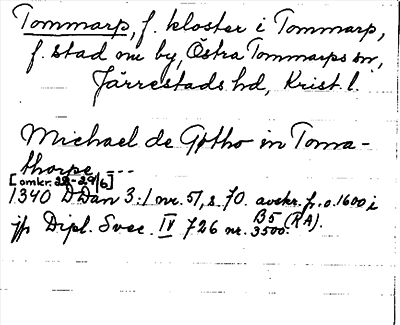 Tommarp, f. kloster i Tommarp,
f. stad nu by, Östra Tommarps sn,
Järrestads hd, Krist. l.
Michael de Gotho in Toma-
thorpe ---
[omkr. 28-29/6]
1340 DDan 3:1 nr. 51, s. 70. avskr. fr. o. 1600 i
B5 (RA).
jfr Dipl. Svec. IV 726 nr. 3500.